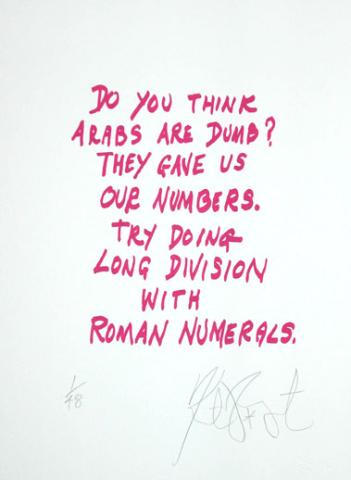 DO YOU THINK
ARABS ARE DUMB?
THEY GAVE US
OUR NUMBERS.
TRY DOING
LONG DIVISION
WITH
ROMAN NUMERALS.
1/48